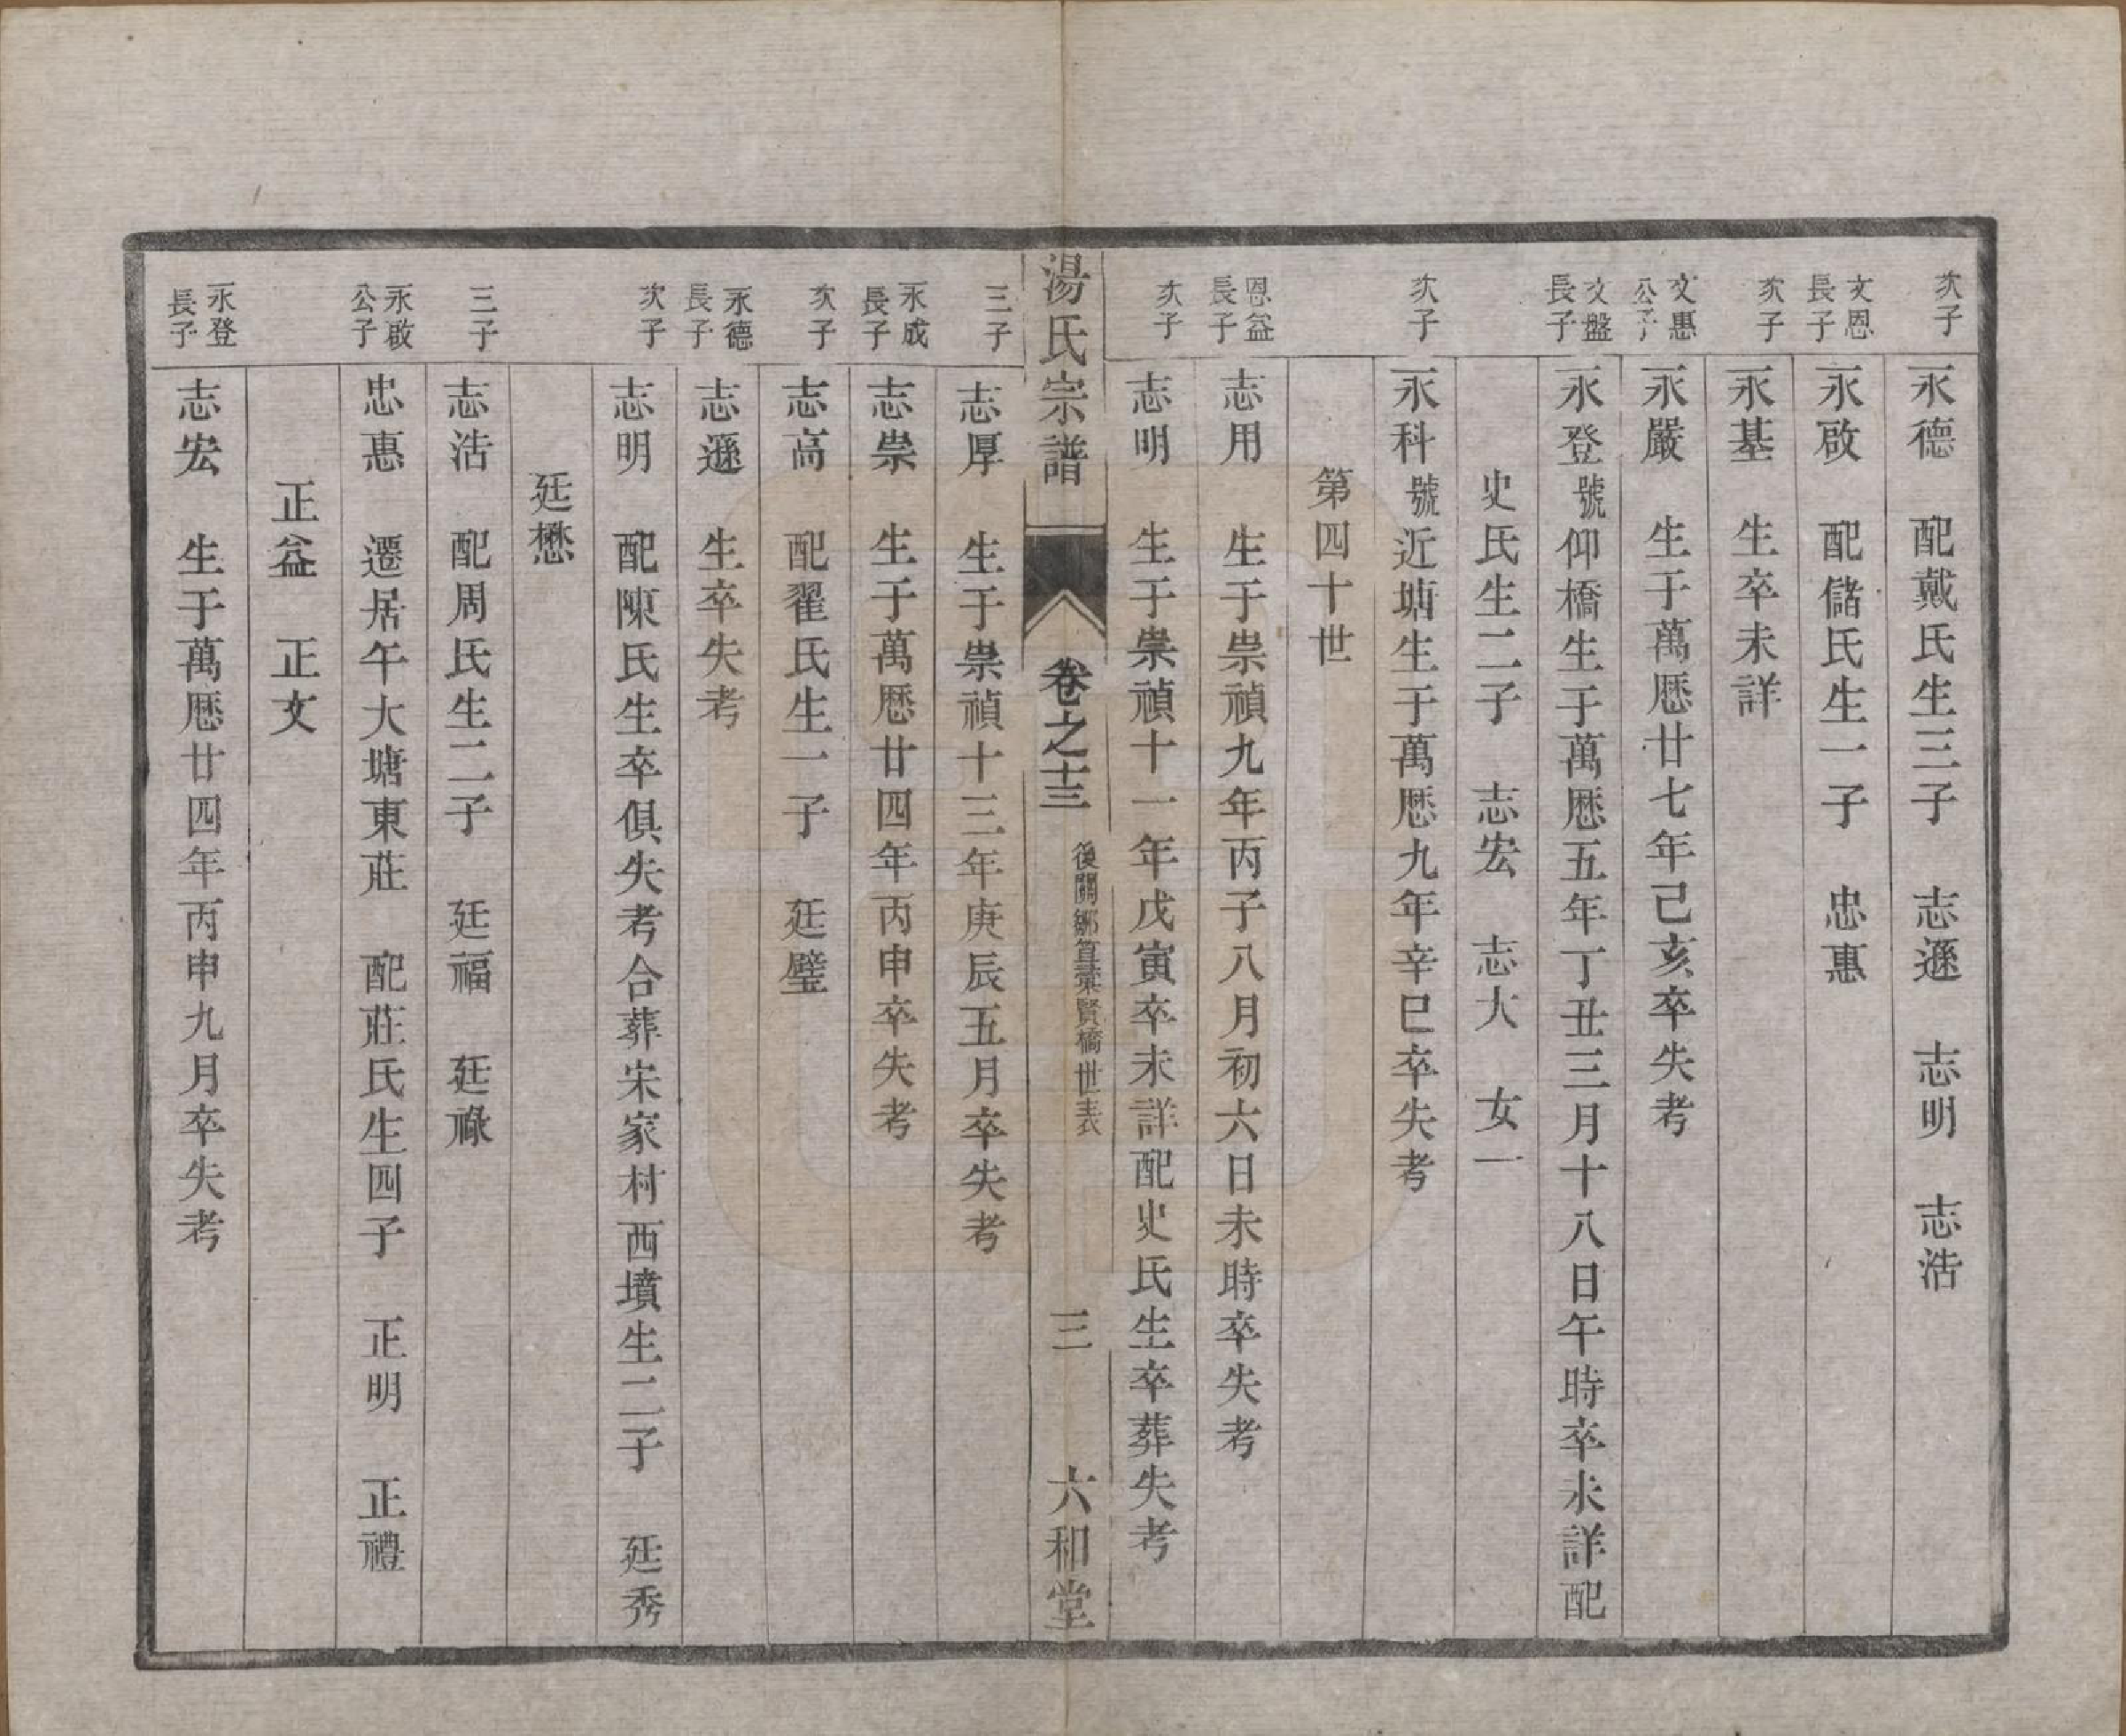 次子
永德　配戴氏生三子　志遜　志明　志浩
文恩長子
永啟　配儲氏生一子　忠惠
次子
永基　生卒未詳
文惠公子
永嚴　生于萬厯廿七年己亥卒失考
文盤長子
永登號仰橋生于萬厯五年丁丑三月十八日午時卒未詳配
史氏生二子　志宏　志大　女一
次子
永科號近塘生于萬厯九年辛巳卒失考
第四十世
恩益長子
志用　生于祟禎九年丙子八月初六日未時卒失考
次子
志明　生于祟禎十一年戊寅卒未詳配史氏生卒葬失考
湯氏宗譜　卷之十三　後關鄒莫賢橋世表　三　六和堂
三子
志厚　生于祟禎十三年庚辰五月卒失考
永成長子
志祟　生于萬厯廿四年丙申卒失考
次子
志高　配翟氏生一子　廷璧
永德長子
志遜　生卒失考
次子
志明　配陳氏生卒俱失考合葬宋家村西墳生二子　廷秀
廷懋
三子
志浩　配周氏生二子　廷福　廷祿
永啟公子
忠惠　遷居午大塘東莊　配莊氏生四子　正明　正禮
正益　正文
永登長子
志宏　生于萬厯廿四年丙申九月卒失考